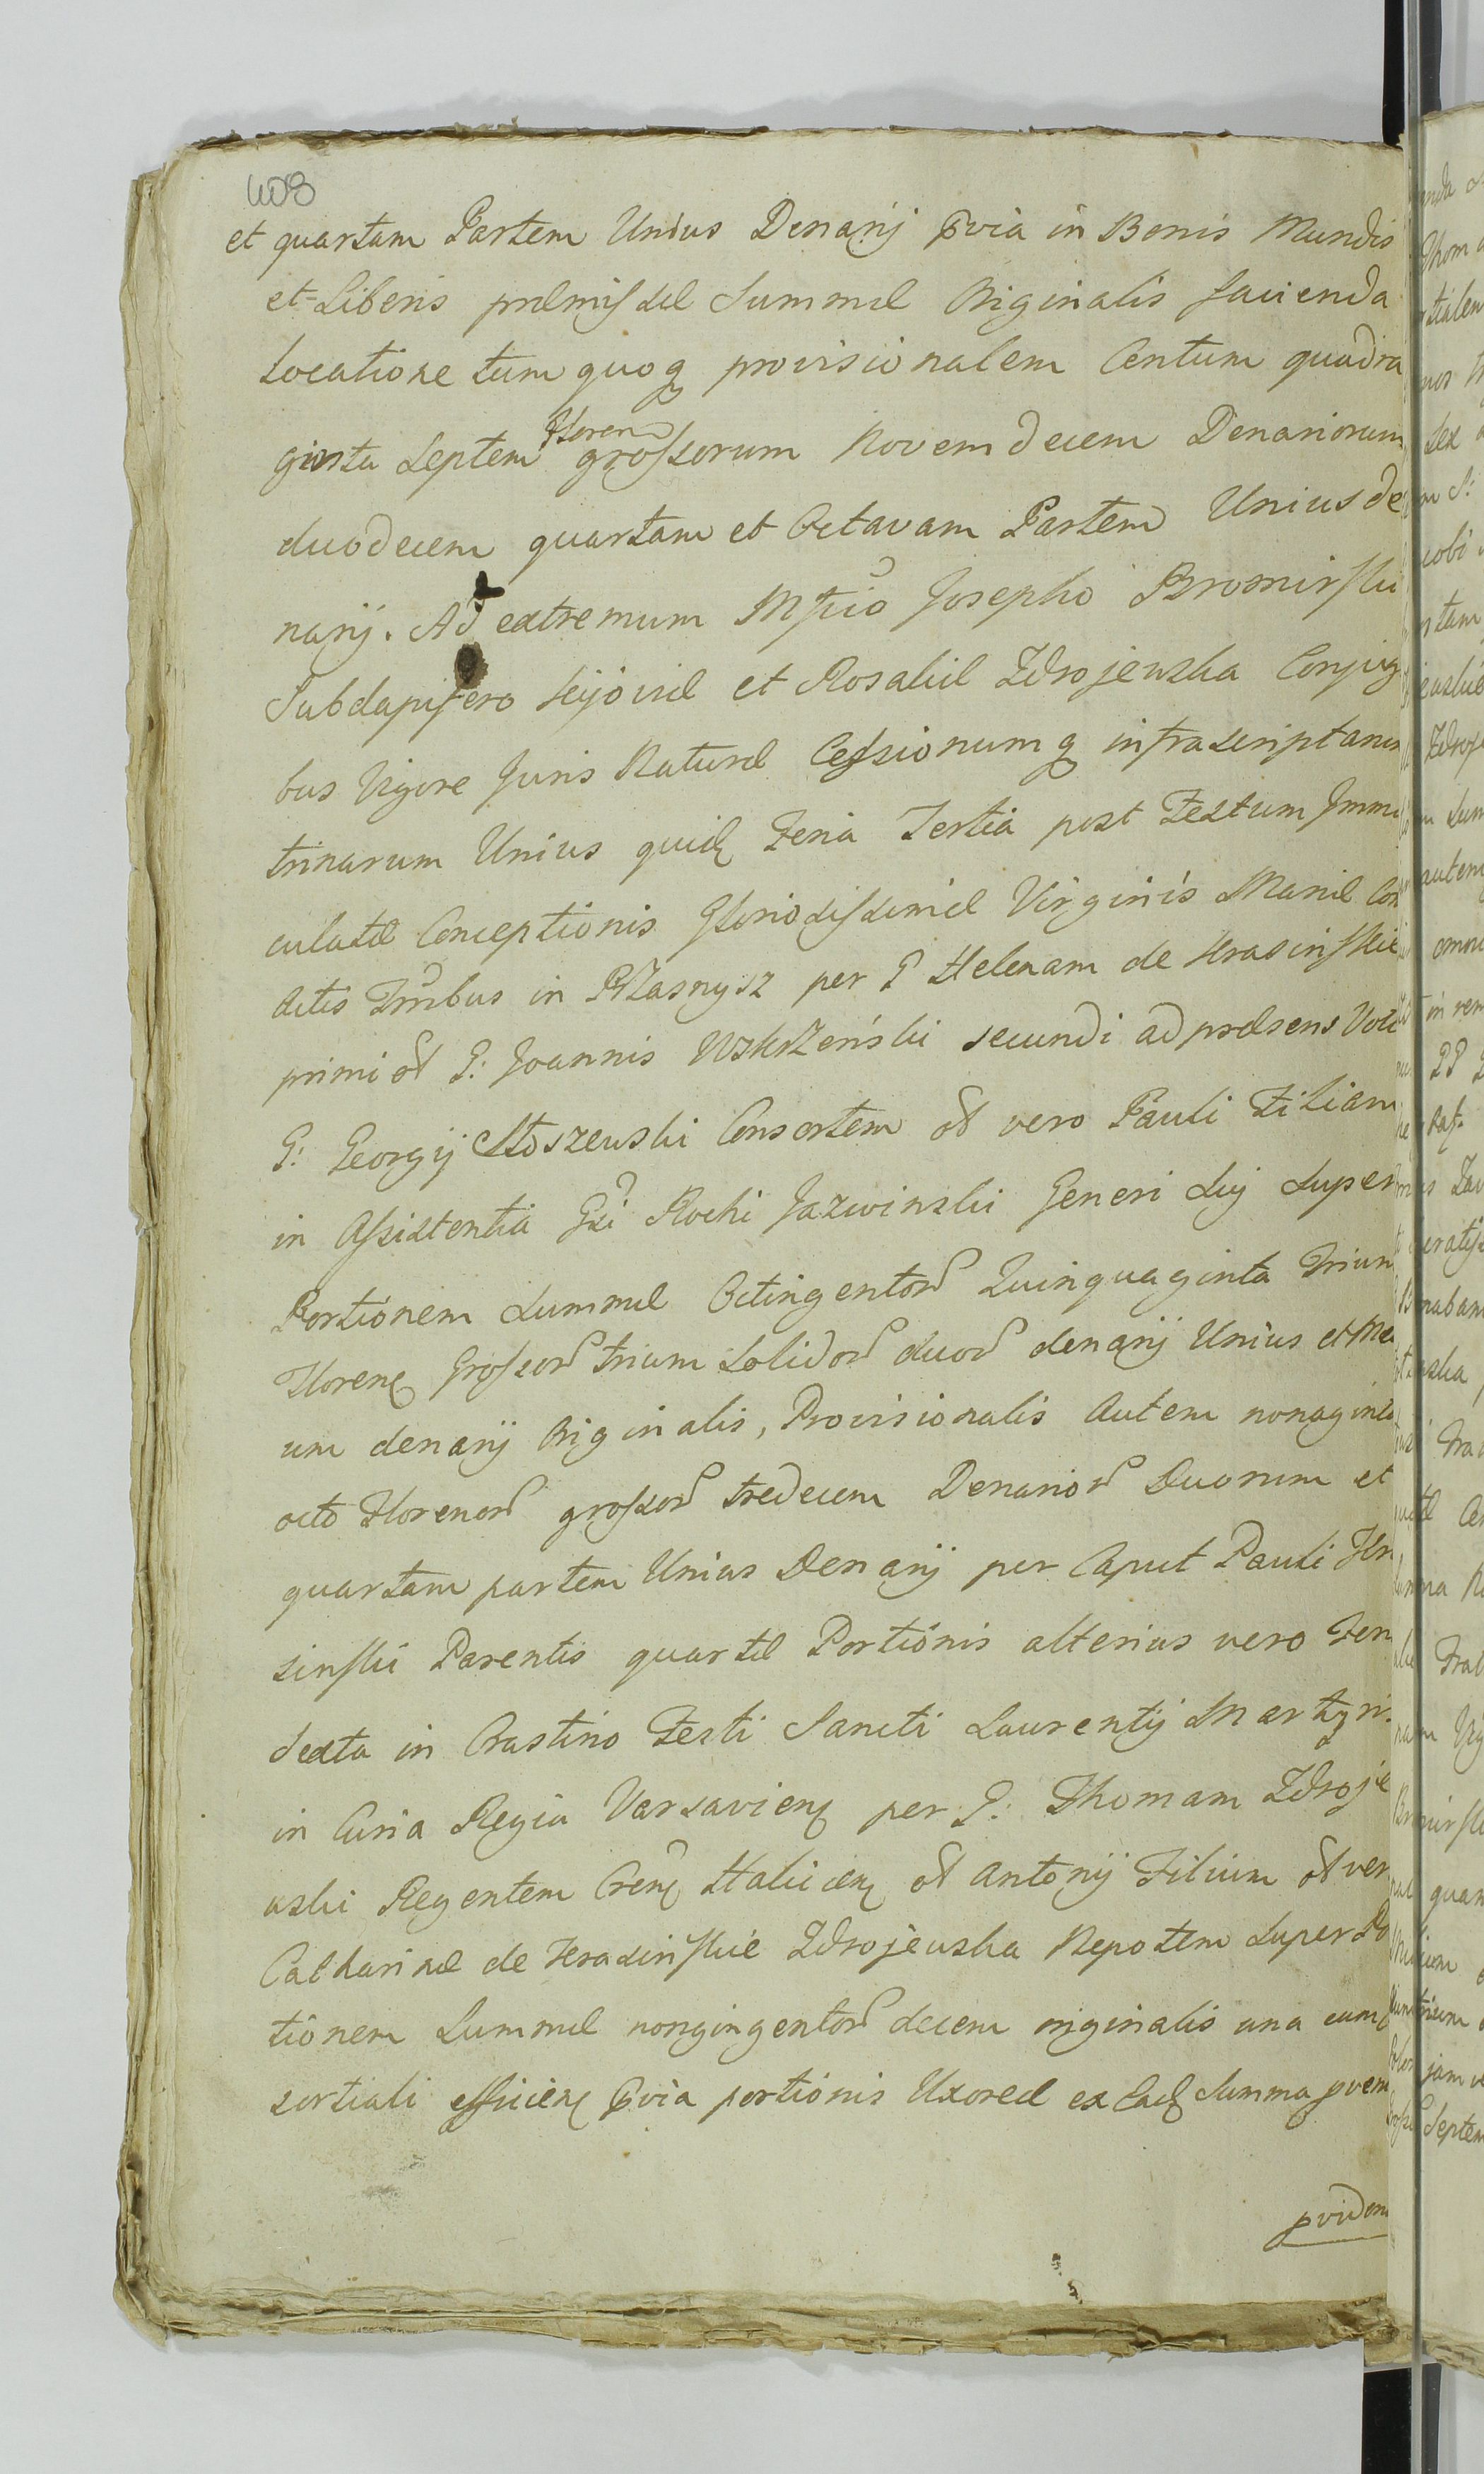 408
et quartam Partem Unius Denarij pvia in Bonis Mundis
et Liberis præmissæ Summæ Originalis facienda
Locatione tum quoq provisionalem Centum quadra
ginta Septem Floren grossorum Novemdecem Denariorum
duodecem quartam et Octavam Partem Unius de
narij. Ad extremum Mfico Josepho Bromirski
Subdapifero Kijoviæ et Rosaliæ Zdrojewska Conjugi
bus Vigore Juris Naturæ Cessionumq infrascriptarum
trinarum Unius quid Feria Tertia post Festum Imma
culatæ Conceptionis Gloriosissimæ Virginis Mariæ Con
ditis Trribus in Przasnysz per G Helenam de Krasinskie
primi ol G: Joannis Wskrzeński secundi ad præsens Voti
G: Georgij Stoszewski Consortem ol vero Pauli Filiam
in Assistentia Gsi Rochi Jazwinski Generi Sui Super
Portionem Summæ Octingentor Quinquaginta Trium
Floren Grossor trium Solidor duor denarij Unius et Me
um denarij Originalis, Provisionalis Autem nonaginta
octo Florenor grossor tredecem Denarior Duorum et
quartam partem Unius Denarij per Caput Pauli Kra
sinski Parentis quartæ Portionis alterius vero Feria
Sexta in Crastino Festi Sancti Laurentij Martyris
in Curia Regia Varsavien per G: Thomam Zdroje
wski Regentem Cren Halicien ol Antonij Filium ol vero
Catharinæ de Krasinskie Zdrojewska Nepotem Super Po
tionem Summæ nongingentor decem originalis una cum
sortiali efficien pvia portionis Uxoreæ ex Ead Summa prem
pviden